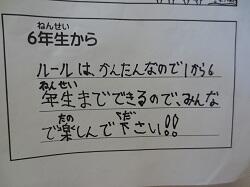 ねんせい
6年生から
ルールは、かんたんなので1から6
ねんせい
年生までできるので、みんな
たの くだ
で楽しんで下さい!!